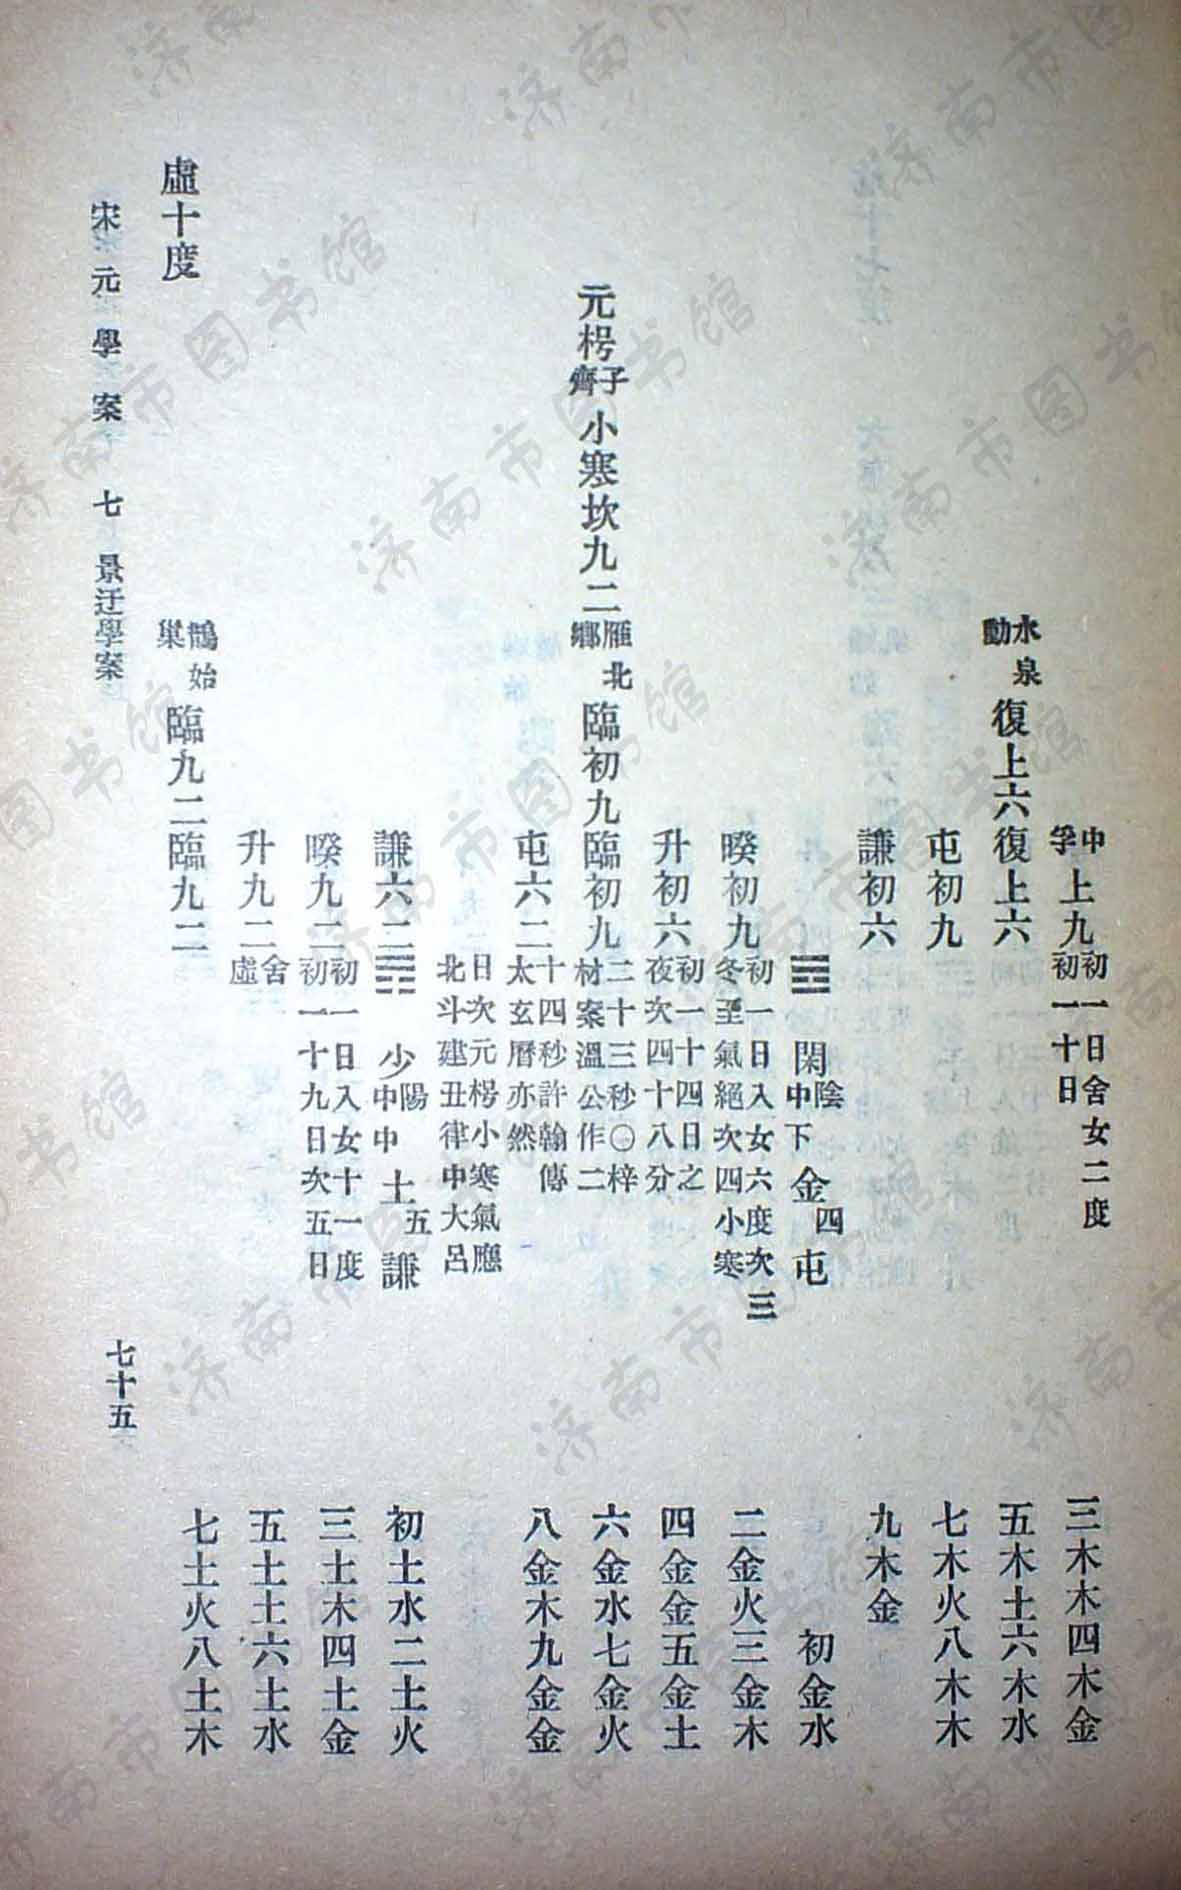 中孚上九初一日舍女二度初一十日 三木木四木金
水泉動 復上六復上六 五木土六木水
屯初九 七木火八木木
謙初六 九木金
閑陰中下金四屯 初金水
暌初九初一日入女六度次三冬至氣絕次四小寒 二金火三金木
升初六初一十四日之夜次四十八分 四金金五金土
元枵子齊小寒坎九二雁北鄉 臨初九臨初九二十三秒〇梓材案溫公作二 六金水七金火
屯六二十四秒許翰傳太玄曆亦然 八金木九金金
日次元枵小寒氣應北斗建丑律中大呂
謙六二 少陽中中土五謙 初土水二土火
暌九二初一日入女十一度初一十九日次五日 三土木四土金
升九二舍虛 五土土六土水
虛十度 鵲始巢 臨九二臨九二 七土火八土木
宋元學案 七 景迂學案 七十五
济南市图书馆